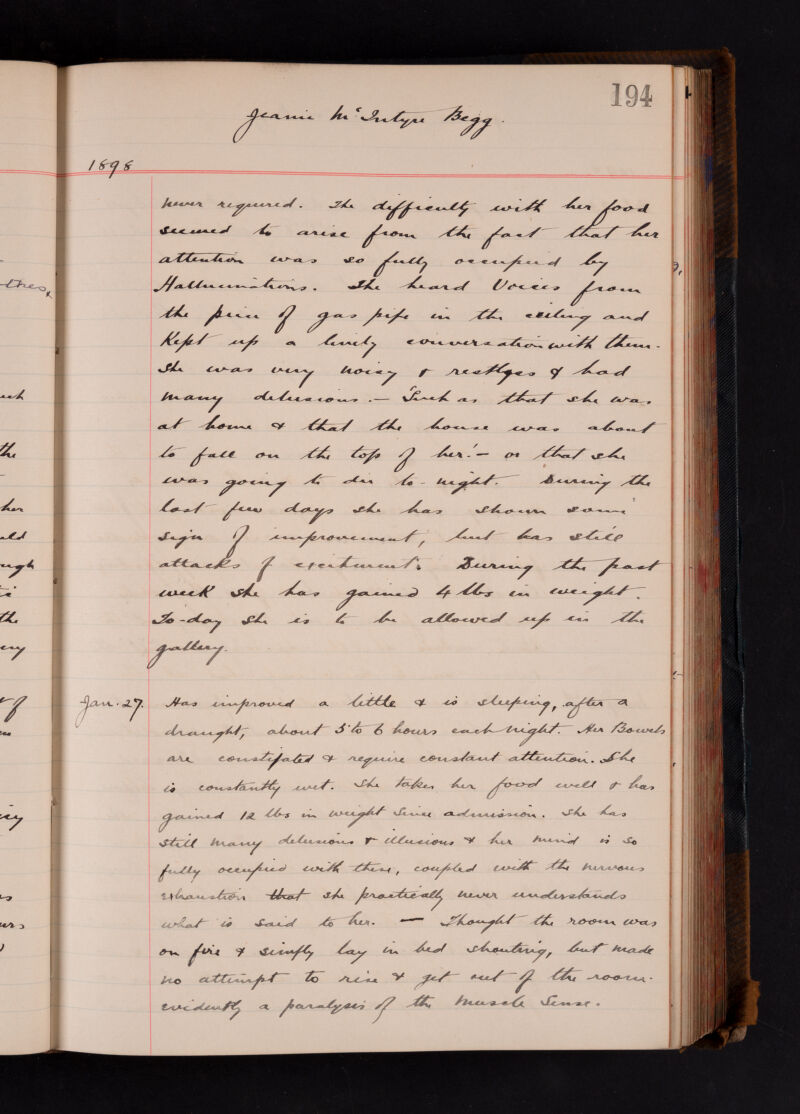 194
Jeanie McIntyre Begg.
1898
never required. The difficulty with her food
seemed to arise from the fact that her
attention was so fully occupied by
Hallucinations. She heard Voices from
the piece of gas pipe in the ceiling and
Kept up a lively conversation with them.
She was very noisy & restless & had
many delusions. — Such as that she was
at home & that the house was about
to fall on the top of her! — or that she
was going to die to-night. During the
last few days she has shown some
sign of improvement, but has still
attacks of excitement. During the past
week she has gained 4 lbs in weight.
To-day she is to be allowed up in the
gallery.
Jan. 27. Has improved a little & is sleeping, after a
draught, about 5 to 6 hours each night. Her Bowels
are constipated & require constant attention. She
is constantly wet. She takes her food well & has
gained 12 lbs in weight since admission. She has
still many delusions & illusions & her mind is so
fully occupied with these, coupled with the nervous
exhaustion that she practically never understands
what is said to her. — Thought the room was
on fire & simply lay in bed shouting, but made
no attempt to rise & get out of the room.
evidently a paralysis of the muscle sense.
the
her
the